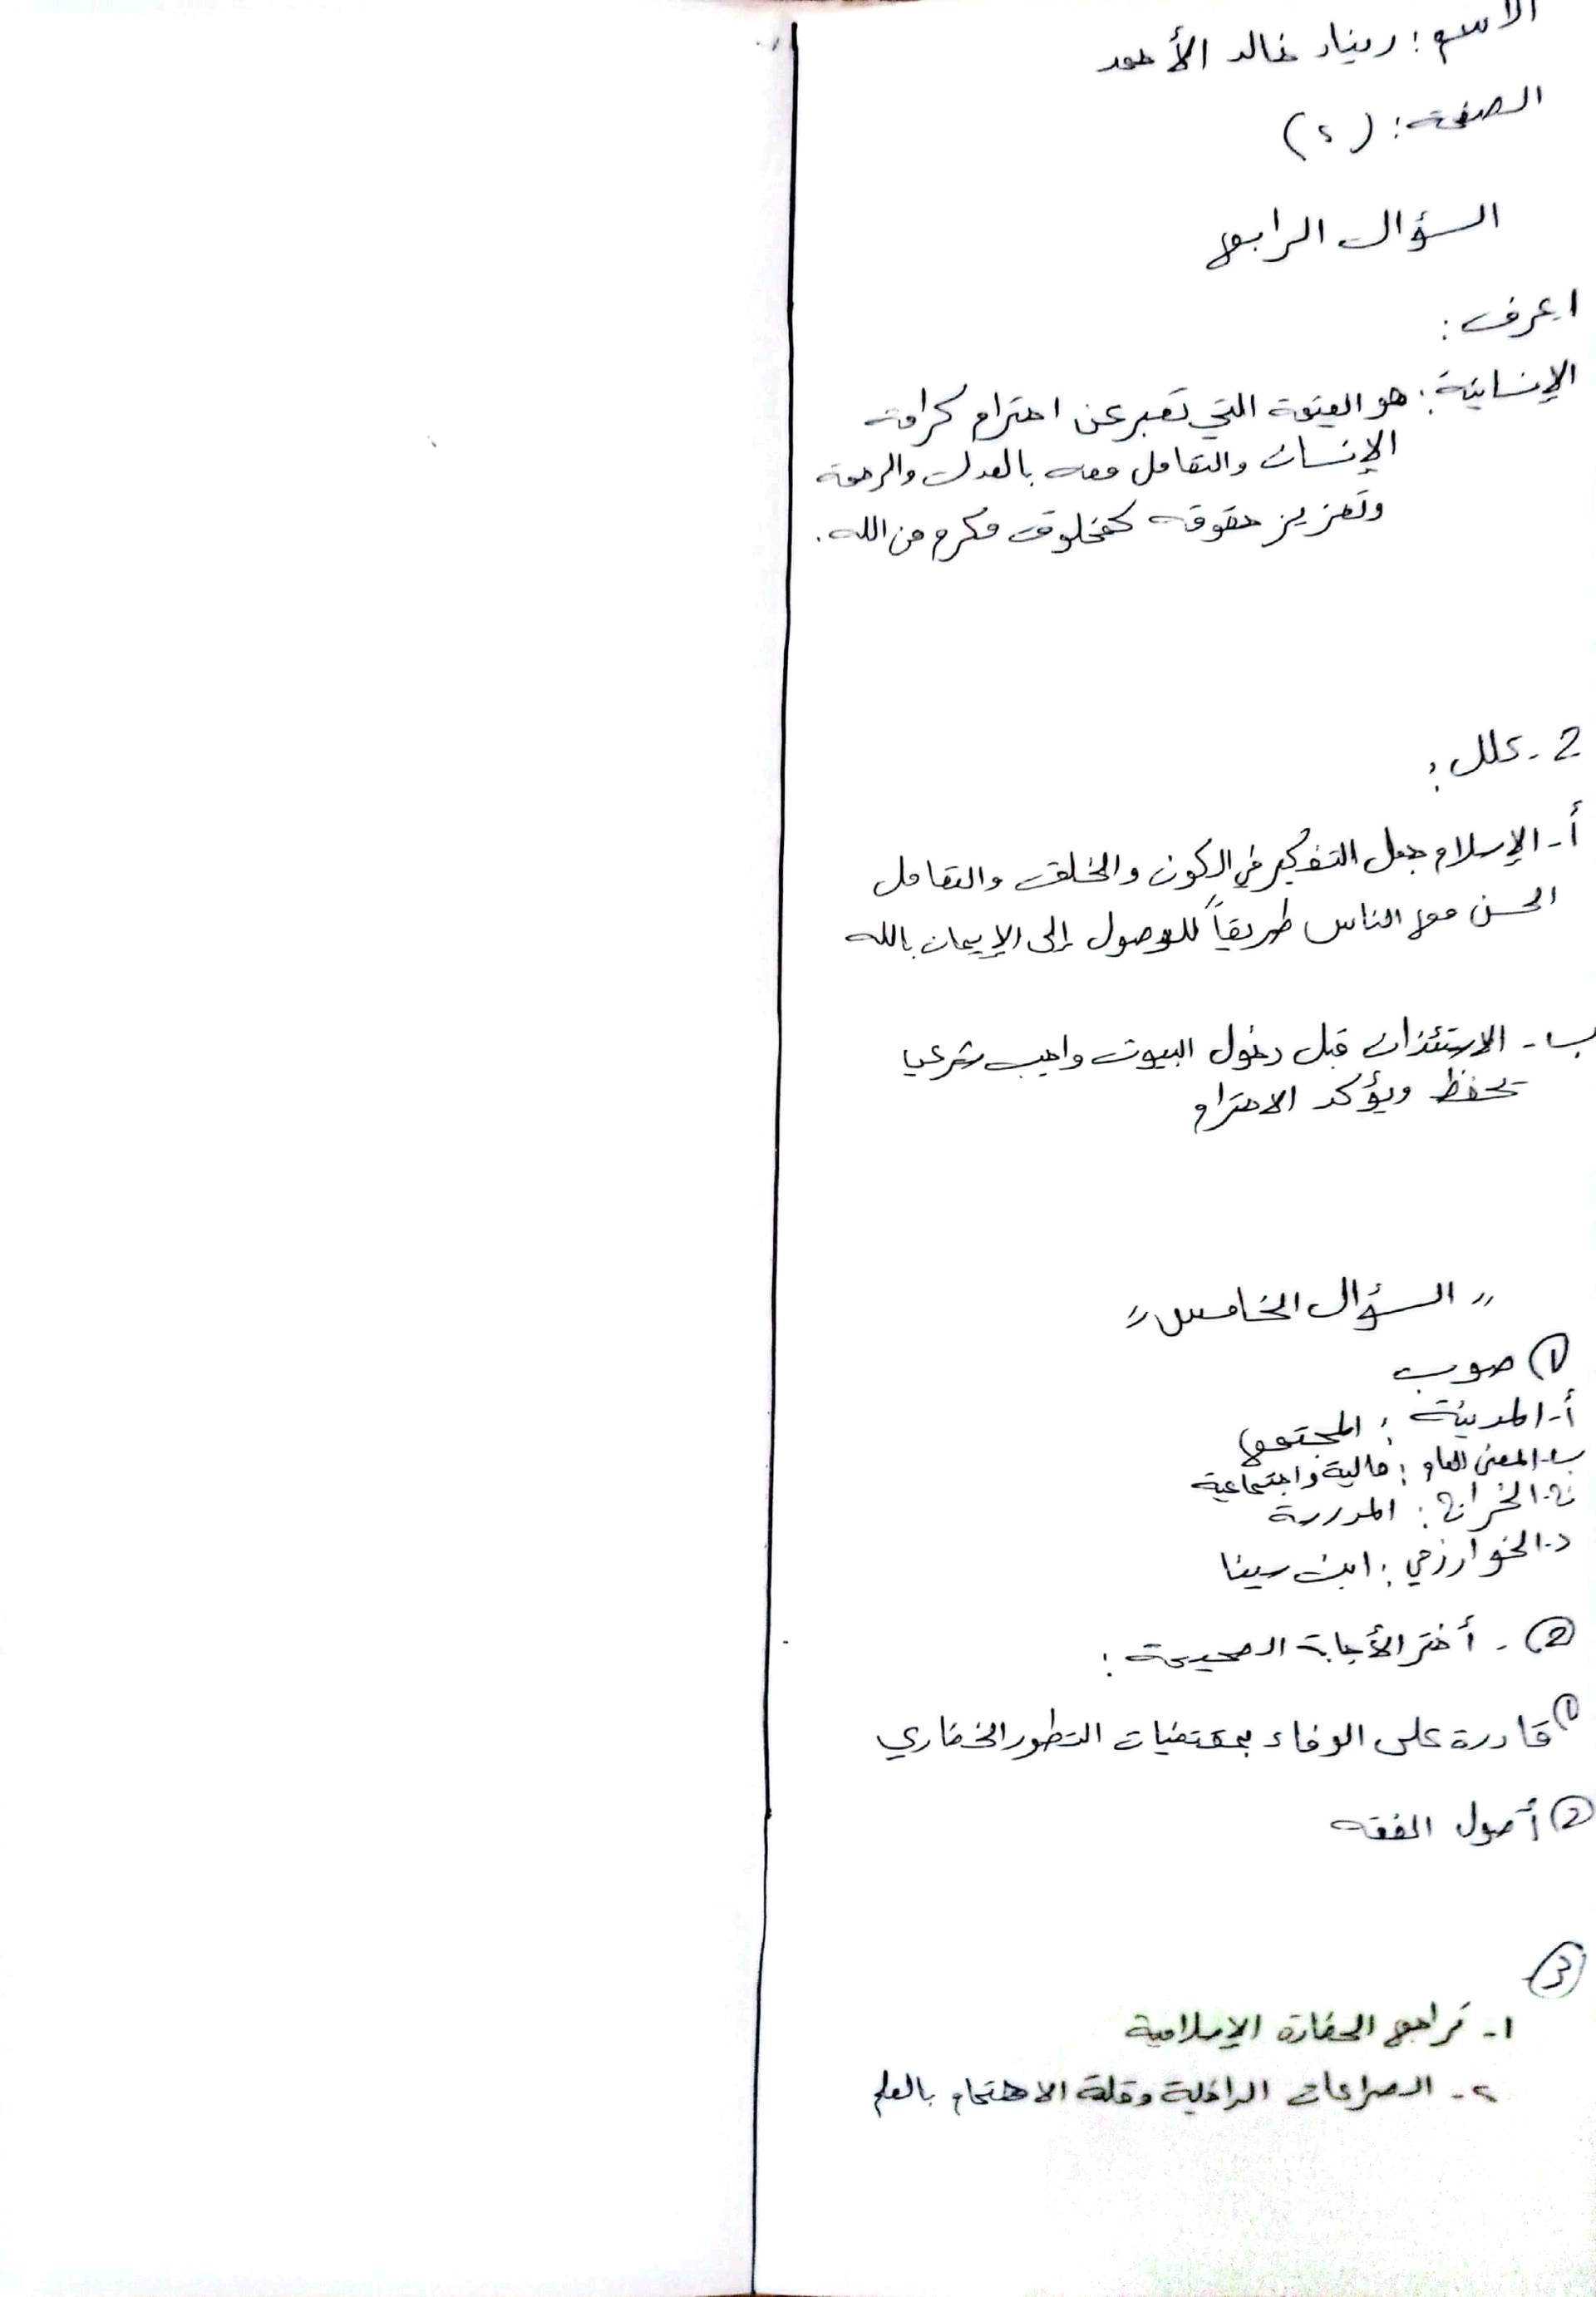 الاسم : ريناد خالد الأحمد
الصفحة : (٤)
السؤال الرابع
١عرف :
الإنسانية : هو القيمة التي تعبر عن احترام كرامة
الإنسان والتعامل معه بالعدل والرحمة
وتعزيز حقوقه كمخلوق مكرم من الله .
2 - علل :
أ - الإسلام جعل التفكير في الكون والخلق والتعامل
الحسن مع الناس طريقاً للوصول إلى الإيمان بالله
ب - الاستئذان قبل دخول البيوت واجب شرعي
يحفظ ويؤكد الاحترام
" السؤال الخامس "
① صوب
أ - المدينة : المجتمع
ب - المعنى العام : مالية واجتماعية
الخزانة : المدرسة
د - الخوارزمي : ابن سينا
② - أختر الأجابة الصحيحة :
① قادرة على الوفاء بمقتضيات التطور الحضاري
② أصول الفقه
③
١ - تراجع الحضارة الإسلامية
٢ - الصراعات الداخلية وقلة الاهتمام بالعلم